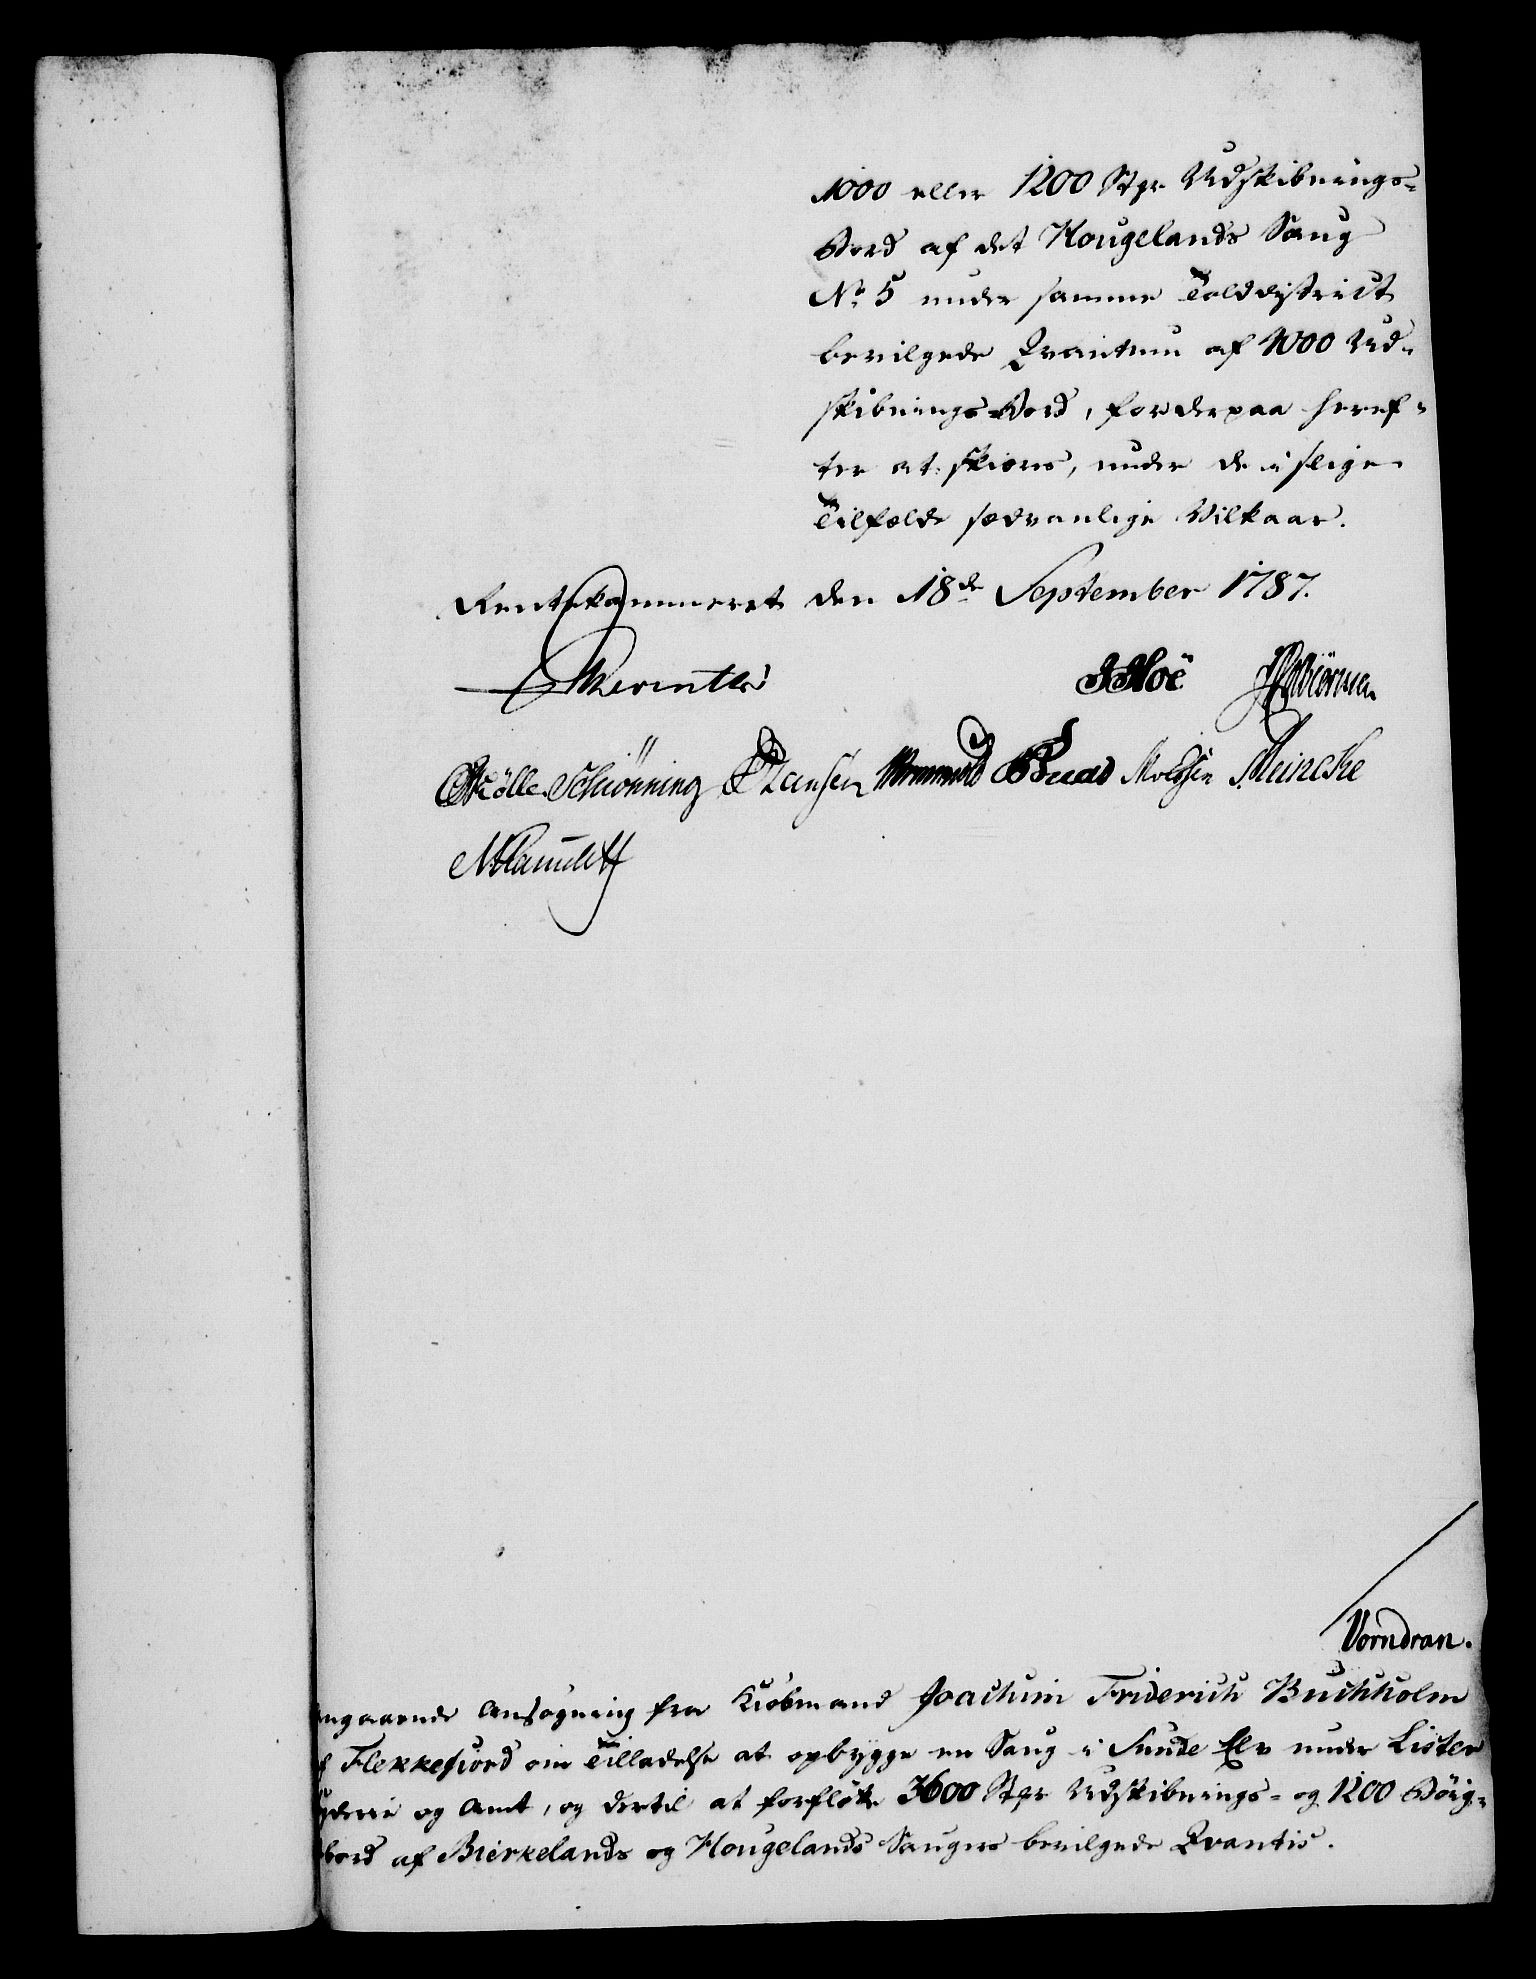 1000 eller 1200 Stpr Udskibnings-
Bord af det Hougelands Saug
No 5 under samme Tolddistrict
bevilgede Qvantum af 4000 Ud-
skibnings-Bord, for derpaa heref-
ter at skiæres, under de i slige
Tilfælde sædvanlige Vilkaar.
Rentekammeret den 18de September 1787.
Reventlow
JHoë
Møller Schiönning Hansen Wormskiold Bruun Meincke
Vorndran.
angaaende Ansøgning fra Kiøbmand Joachum Friderich Buchholm
af Flekkefiord om Tilladelse at opbygge en Saug i Sunde Elv under Lister
og Amt, og dertil at forfløtte 3600 Stpr Udskibnings- og 1200 Börig-
bord af Bierkelands og Hougelands Saugers bevilgede Qvantis.